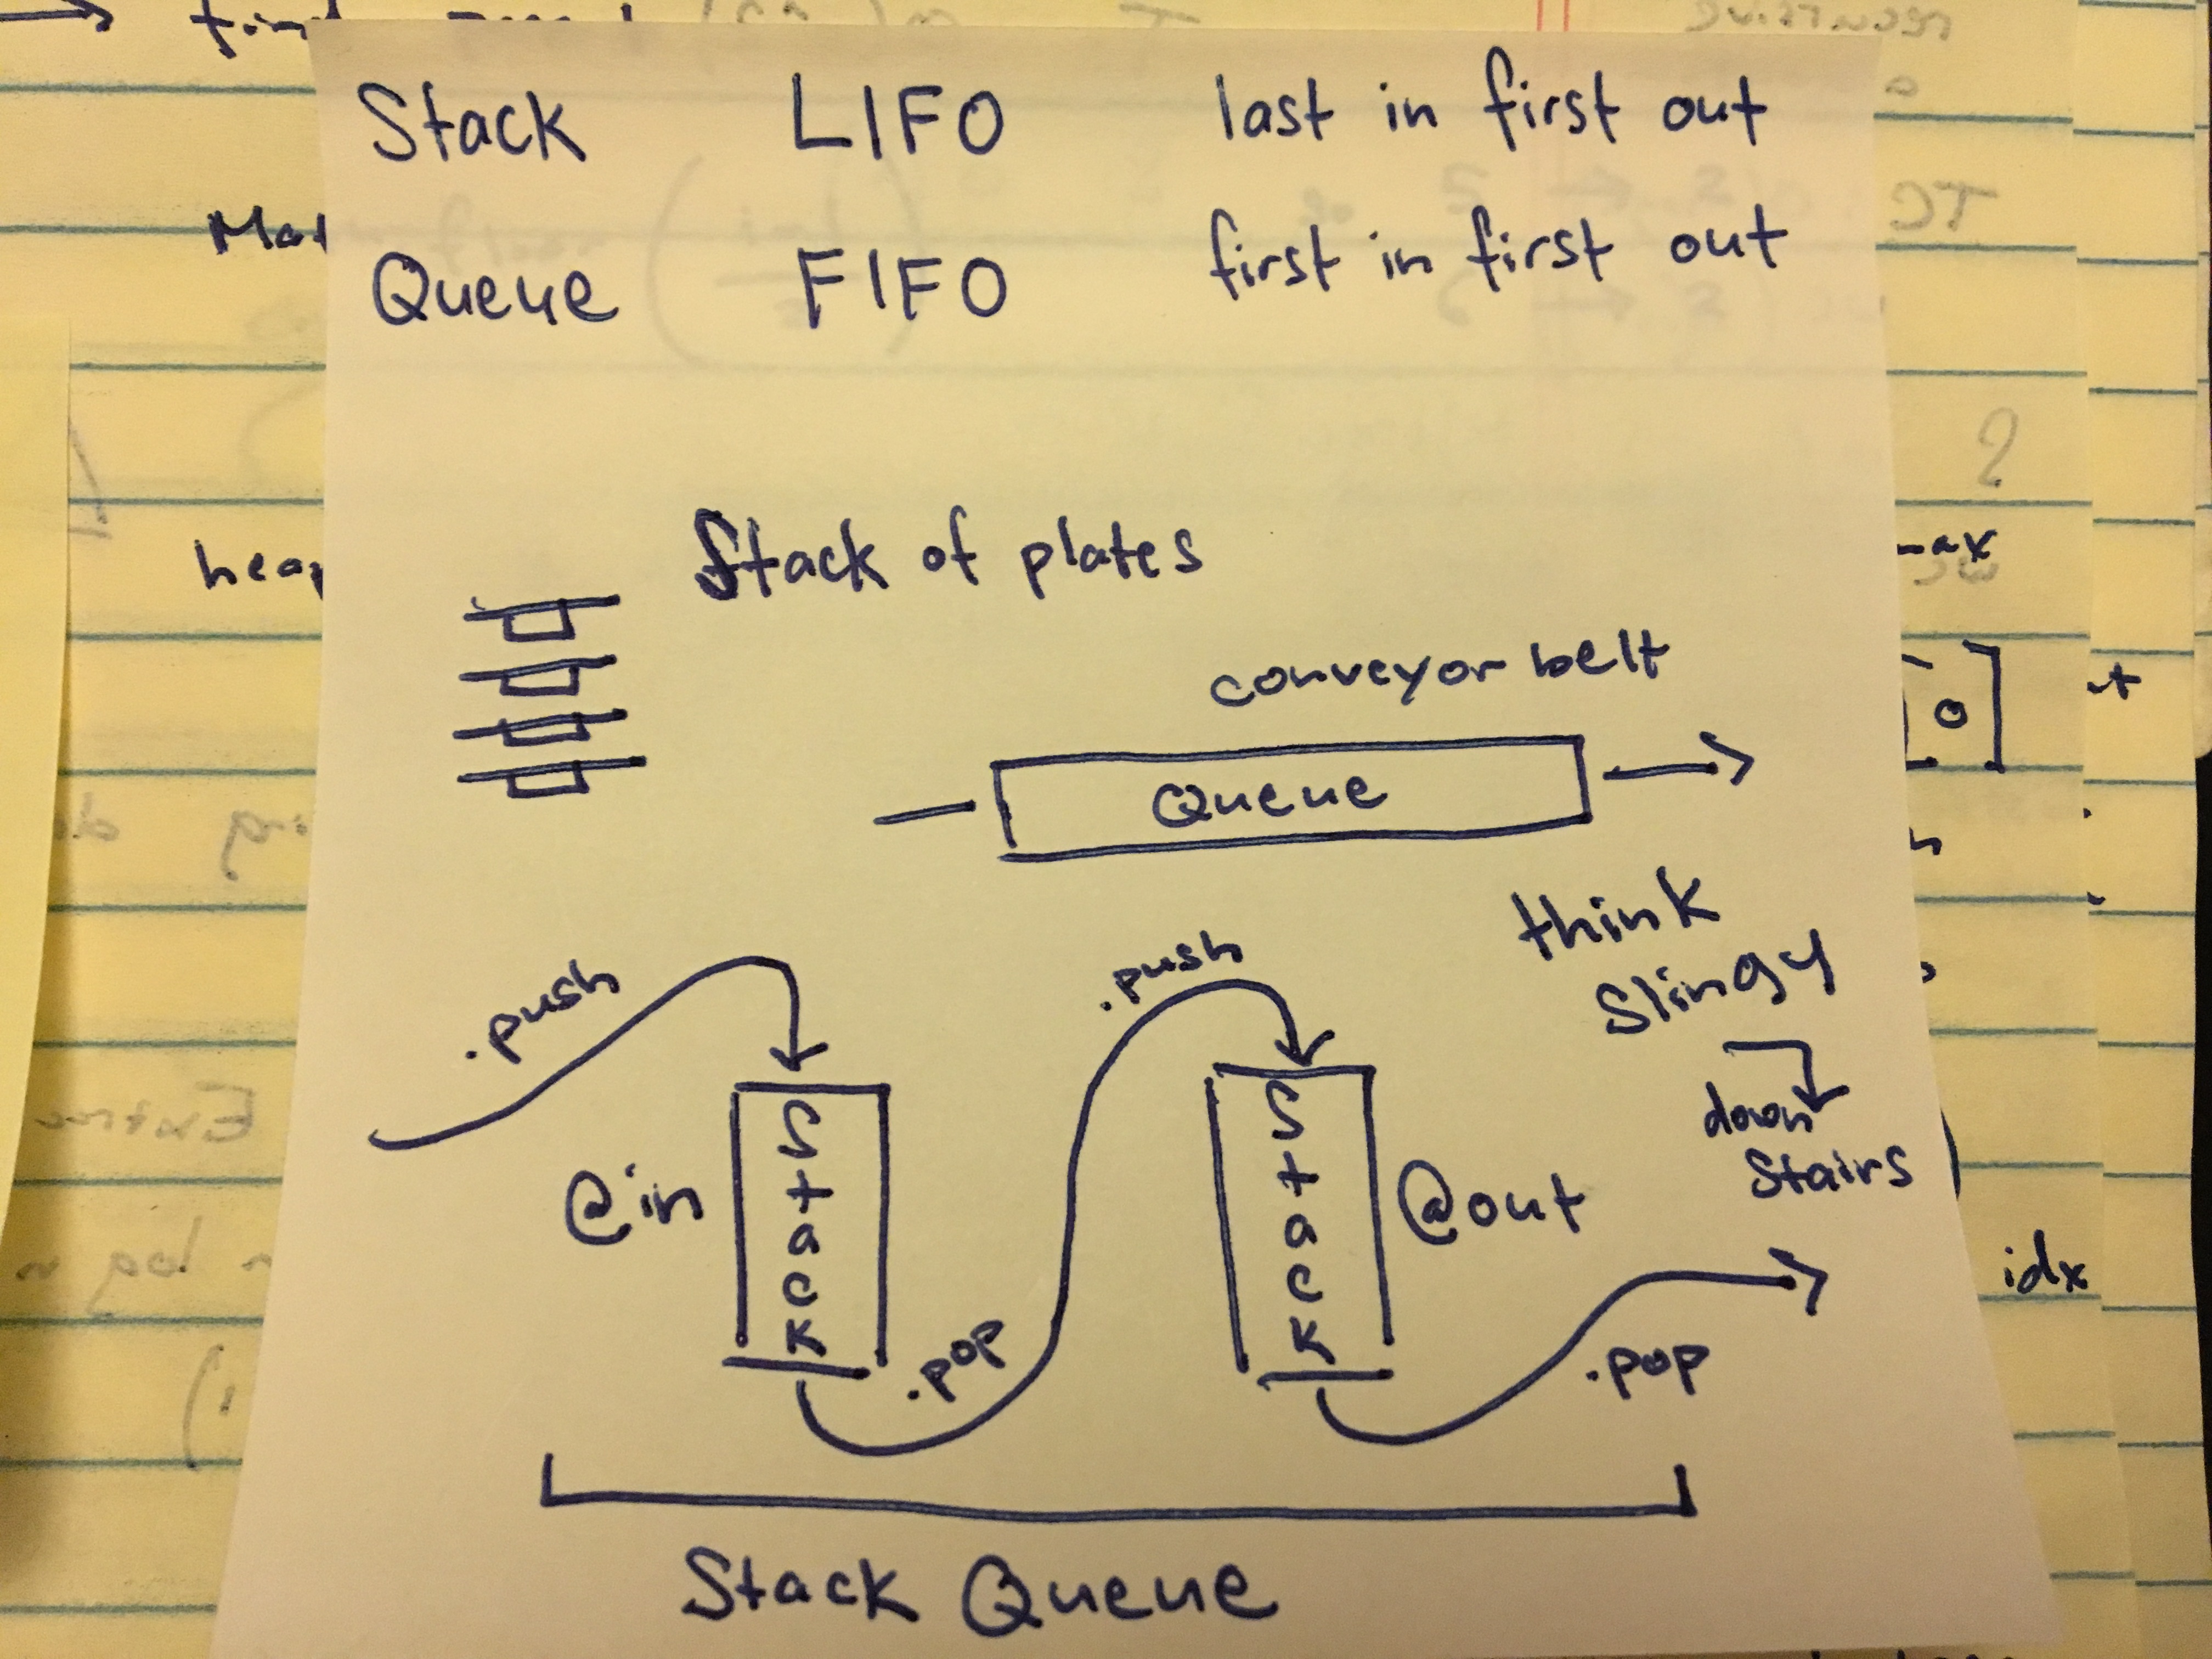 Stack LIFO last in first out
Queue FIFO first in first out
Stack of plates
conveyor belt
Queue
think
Slingy
down
stairs
.push
.push
@in
Stack
@out
Stack
.pop
.pop
Stack Queue
idx